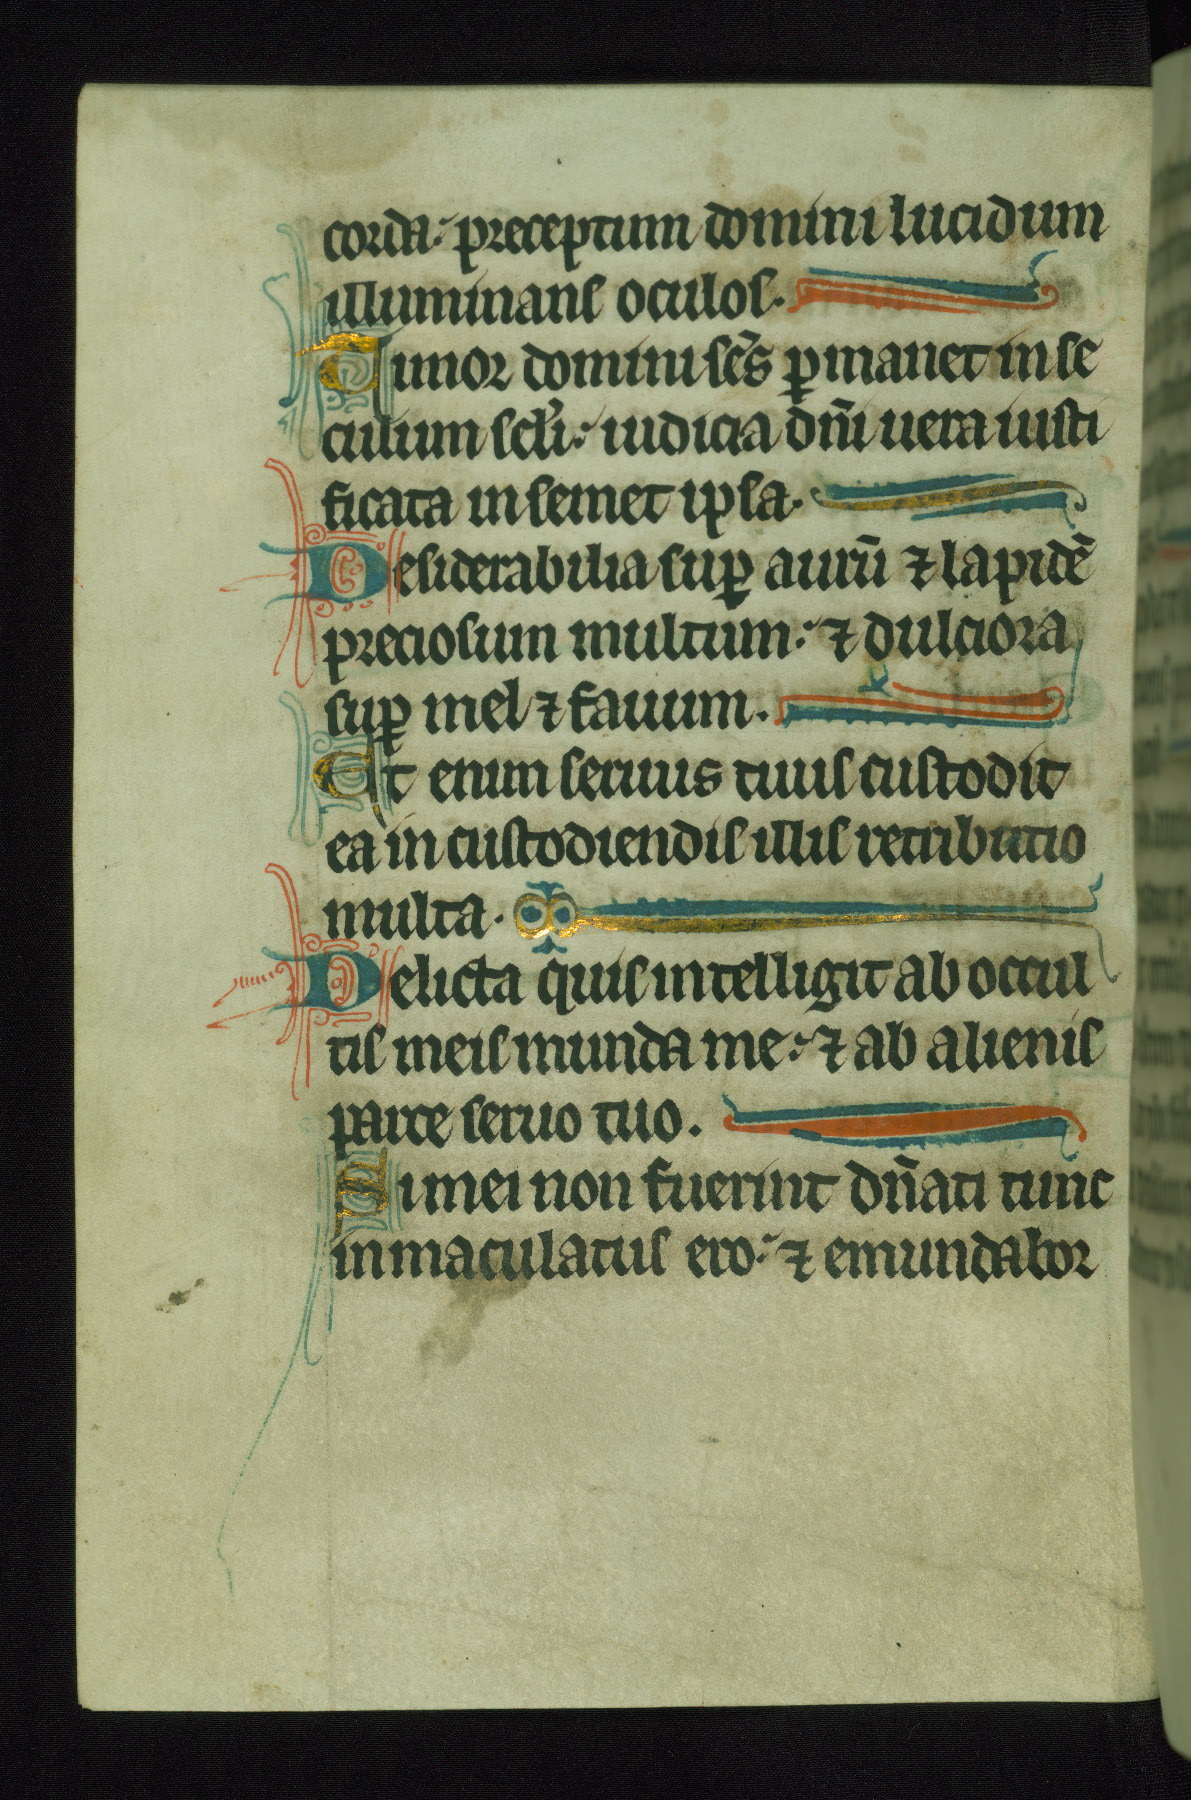 corda: preceptum domini lucidum
illuminans oculos.
Timor domini sc̄s ꝑmanet in se
culum sc̄li: iudicia dn̄i uera iusti
ficata in semet ipsa.
Desiderabilia suꝑ aurū ⁊ lapidē
preciosum multum: ⁊ dulciora
suꝑ mel ⁊ fauum.
Et enim seruus tuus custodit
ea in custodiendis illis retributio
multa.
Delicta quis intelligit ab occul
tis meis munda me: ⁊ ab alienis
parce seruo tuo.
Si mei non fuerint dn̄ati tunc
inmaculatus ero: ⁊ emundabor